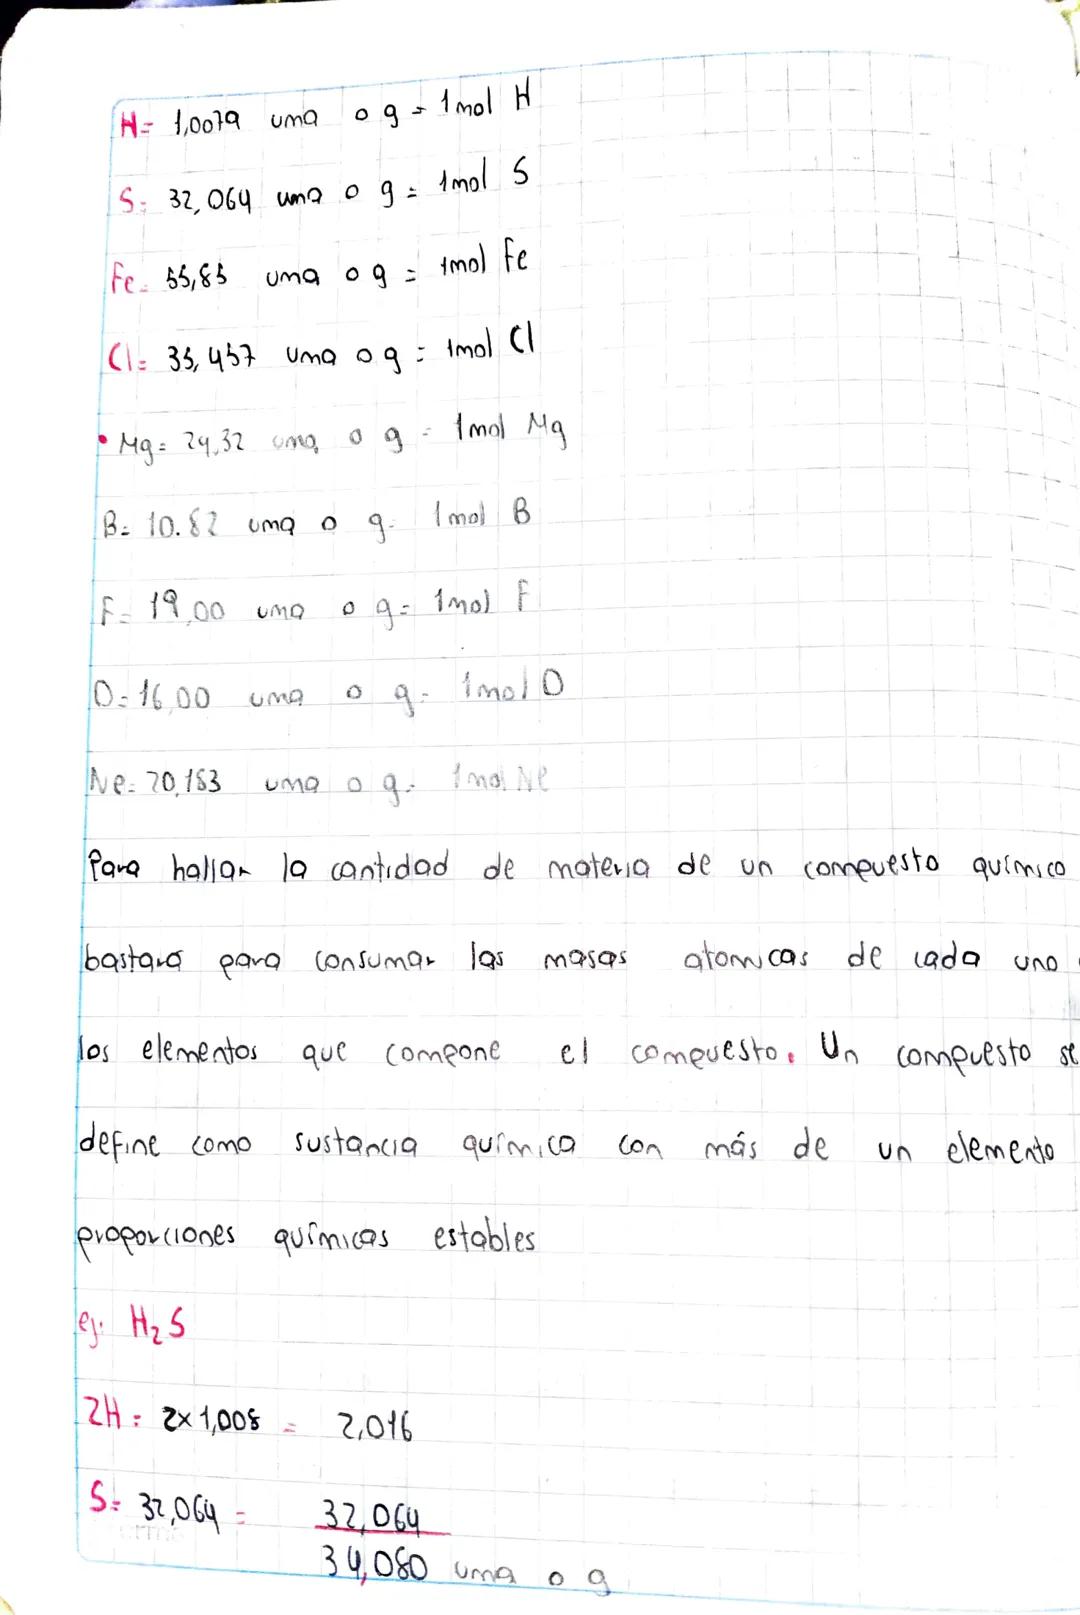 H= 1,0079 uma o g = 1mol H
S= 32,064 uma o g = 1mol S
Fe= 55,85 uma o g = 1mol Fe
Cl= 35,457 uma o g = 1mol Cl
• Mg= 24,32 uma o g = 1mol Mg
B= 10.82 uma o g = 1mol B
F= 19,00 uma o g = 1mol F
O= 16,00 uma o g = 1mol O
Ne= 20,183 uma o g = 1mol Ne
Para hallar la cantidad de materia de un compuesto químico
bastará para consumar las masas atomicas de cada uno
los elementos que compone el compuesto. Un compuesto se
define como sustancia química con más de un elemento
proporciones químicas estables
ej: H₂S
2H = 2x1,008 = 2,016
S= 32,064 = 32,064
34,080 uma o g